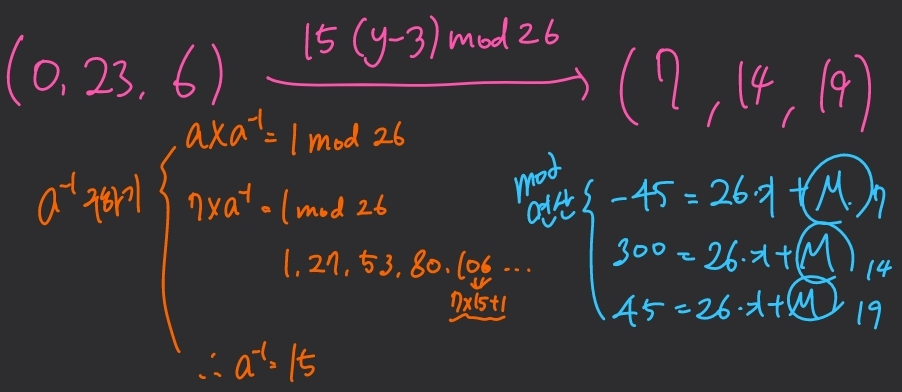 (0, 23, 6) 15 (y-3) mod 26 (7, 14, 19)
a⁻¹ 구하기
a×a⁻¹ = 1 mod 26
7×a⁻¹ = 1 mod 26
1, 27, 53, 80, 106 ...
7×15+1
∴ a⁻¹ = 15
mod
연산
-45 = 26·x + M 7
300 = 26·x + M 14
45 = 26·x + M 19